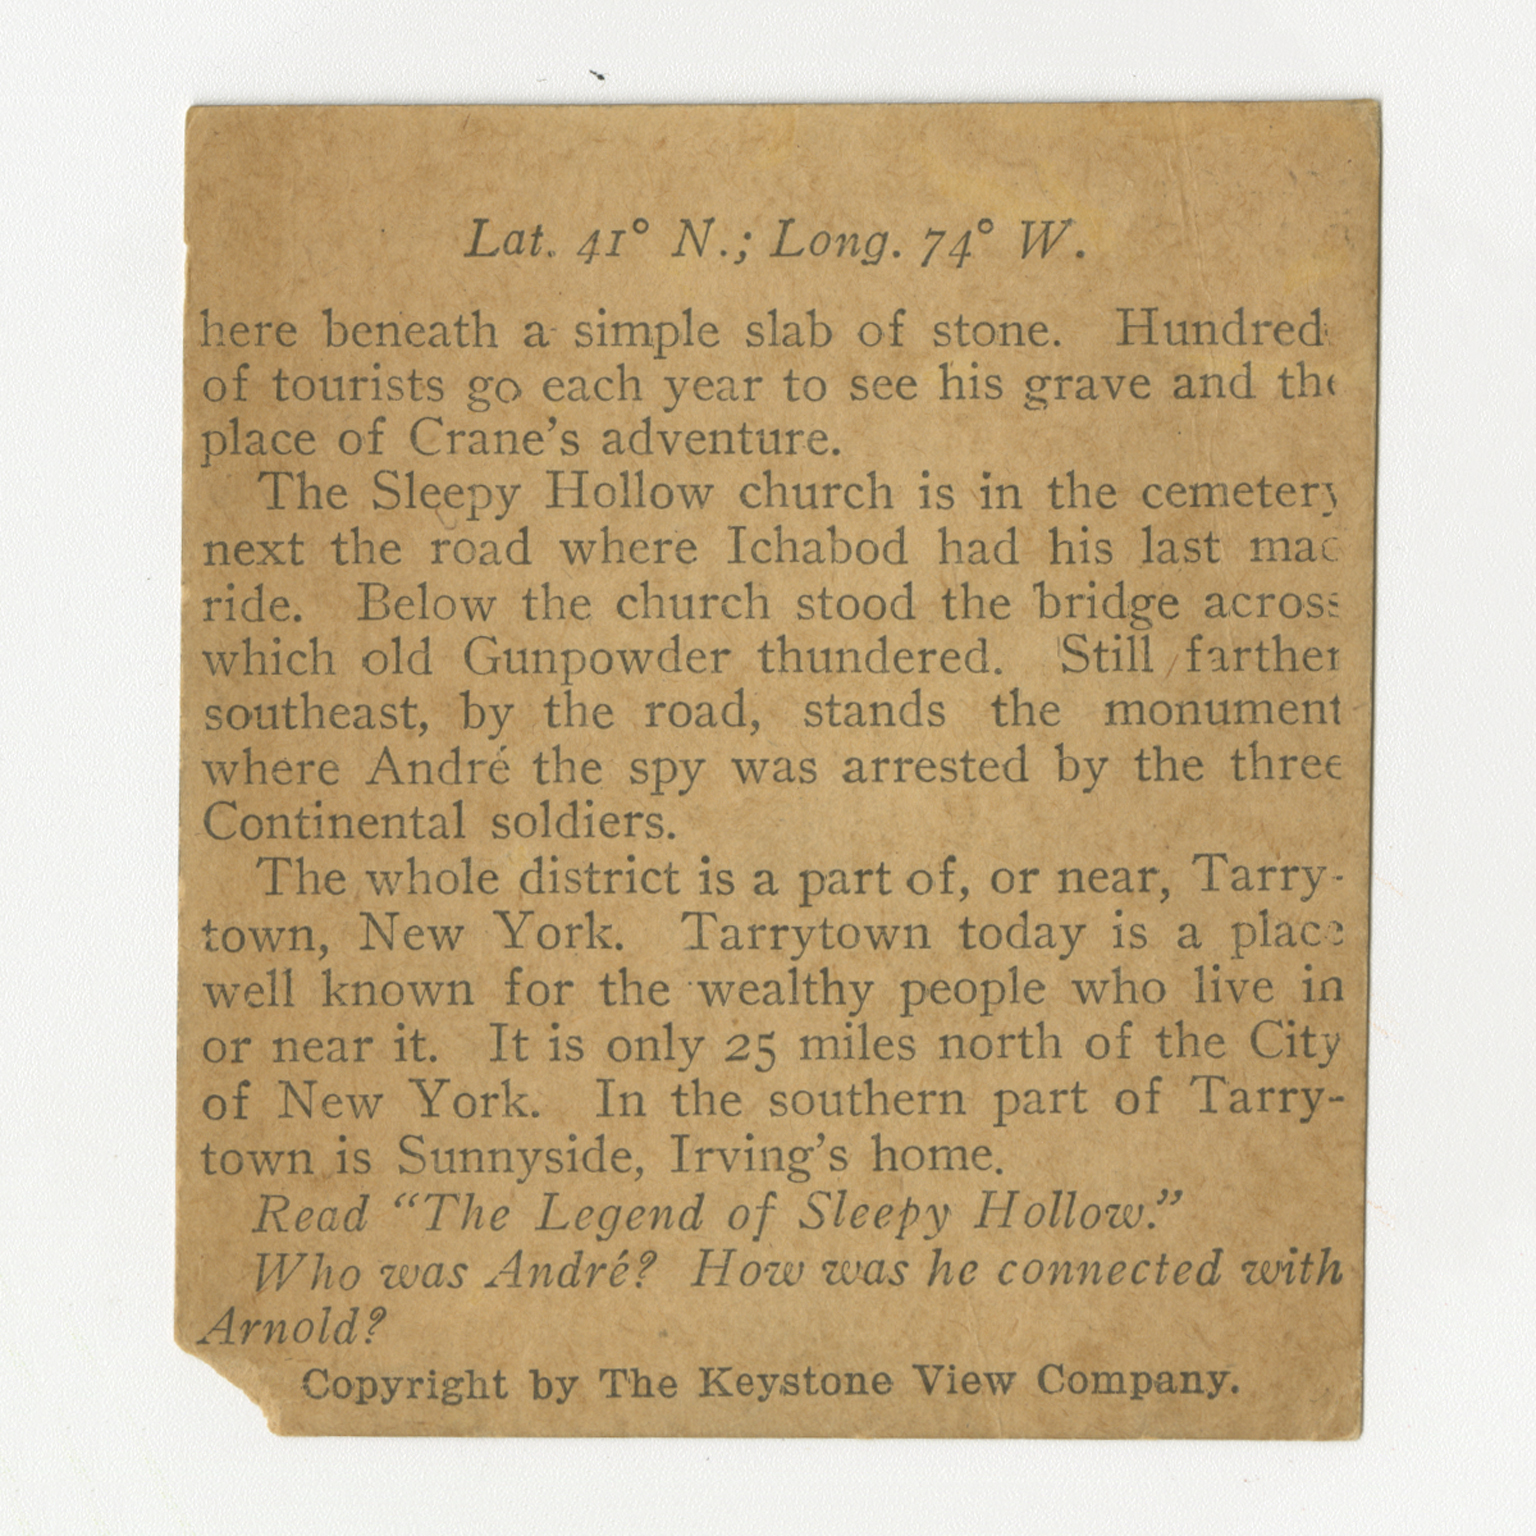 Lat. 41° N.; Long. 74° W.
here beneath a simple slab of stone. Hundred
of tourists go each year to see his grave and the
place of Crane's adventure.
The Sleepy Hollow church is in the cemetery
next the road where Ichabod had his last mad
ride. Below the church stood the bridge across
which old Gunpowder thundered. Still farther
southeast, by the road, stands the monument
where André the spy was arrested by the three
Continental soldiers.
The whole district is a part of, or near, Tarry-
town, New York. Tarrytown today is a place
well known for the wealthy people who live in
or near it. It is only 25 miles north of the City
of New York. In the southern part of Tarry-
town is Sunnyside, Irving's home.
Read “The Legend of Sleepy Hollow.”
Who was André? How was he connected with
Arnold?
Copyright by The Keystone View Company.